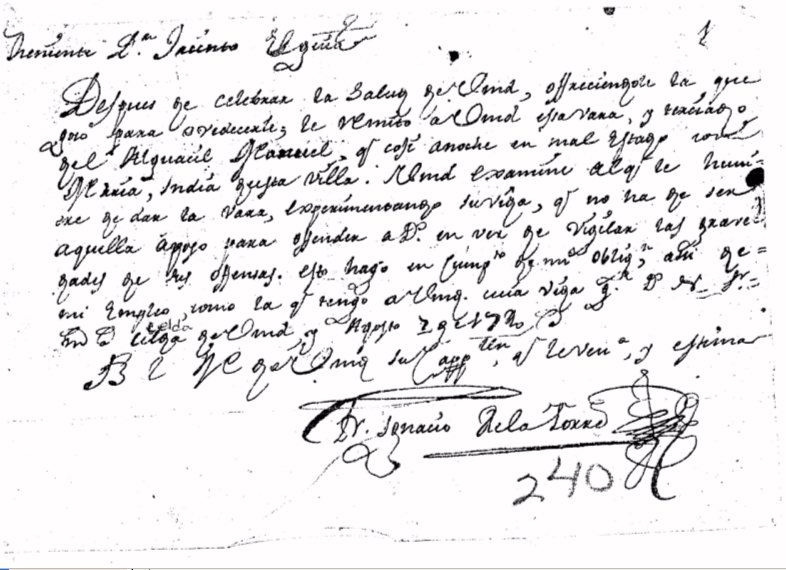 1
Theniente Dn. Jacinto
Despues de celebrar la Salud de Vmd, ofreciendole la que
gozo para ovedecerle, le remito a Vmd esta vara, y
del Alguacil Manuel, q cojí anoche en mal Estado con
Maria, India de esta villa. Vmd examine al q le
de dar la vara, experimentando su vida, q no ha de ser
aquella apoyo para ofender a D. en vez de vigilar las grave=
dades de sus ofensas. esto hago en de mi oblig.n, asi de=
mi Empleo, como la q tengo a Vmd. cuia vida
celda de Vmd, y Agosto 7 de
B L M de Vmd su Capp, q le ven.a, y estima
Fr. Ignacio De la Torre
240